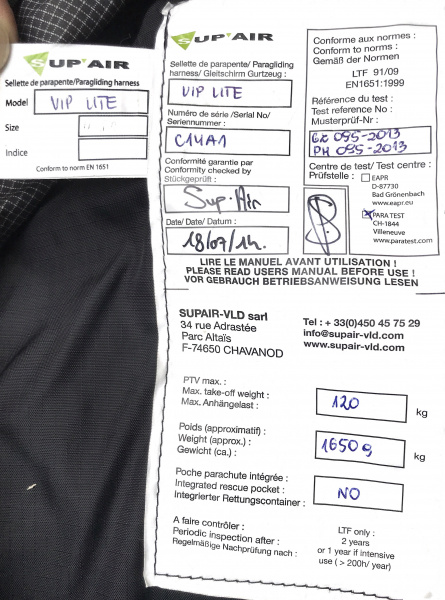 SUP'AIR
Sellette de parapente/Paragliding harness
Model VIP LITE
Size
Indice
Conform to norm EN 1651
SUP'AIR
Sellette de parapente/ Paragliding
harness/ Gleitschirm Gurtzeug :
VIP LITE
Numéro de série /Serial No/
Seriennummer :
C14A1
Conformité garantie par
Conformity checked by
Stückgeprüft :
Sup.Air
Date/ Date/ Datum :
18/07/14.
Conforme aux normes :
Conform to norms :
Gemäß der Normen
LTF 91/09
EN1651:1999
Référence du test :
Test reference No :
Musterprüf-Nr :
GZ 095-2013
PH 095-2013
Centre de test/ Test centre :
Prüfstelle :
EAPR
D-87730
Bad Grönenbach
www.eapr.eu
PARA TEST
CH-1844
Villeneuve
www.paratest.com
LIRE LE MANUEL AVANT UTILISATION !
PLEASE READ USERS MANUAL BEFORE USE !
VOR GEBRAUCH BETRIEBSANWEISUNG LESEN
SUPAIR-VLD sarl
34 rue Adrastée
Parc Altaïs
F-74650 CHAVANOD
Tel : + 33(0)450 45 75 29
info@supair-vld.com
www.supair-vld.com
PTV max. :
Max. take-off weight :
Max. Anhängelast :
120 kg
Poids (approximatif) :
Weight (approx.) :
Gewicht (ca.) :
1650g kg
Poche parachute intégrée :
Integrated rescue pocket :
Integrierter Rettungscontainer :
NO
A faire contrôler :
Periodic inspection after :
Regelmäßige Nachprüfung nach :
LTF only :
2 years
or 1 year if intensive
use ( > 200h/ year)